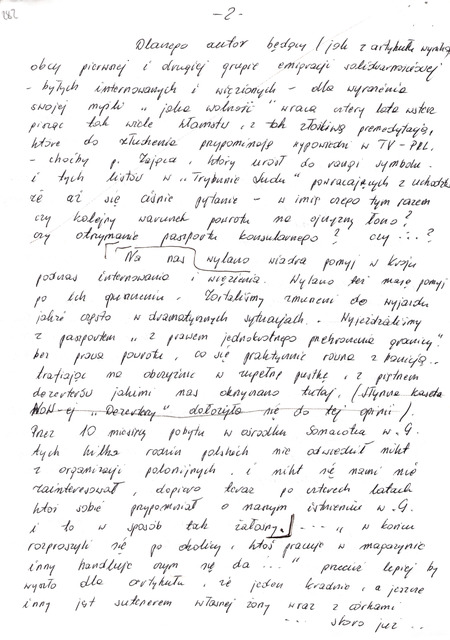 282
- 2 -
Dlaczego autor będący / jak z artykułu wynika
obcy pierwszej i drugiej grupie emigracji solidarnościowej
- byłych internowanych i więzionych - dla wyrażenia
swojej myśli " jaka wolność " wraca cztery lata wstecz
pisząc tak wiele kłamstw, z tak złośliwą premedytacją,
które do złudzenia przypominają wypowiedzi w TV - PRL.
- choćby p. Zająca, który urósł do rangi symbolu.
i tych listów w „Trybunie Ludu" powracających z uchodźs.
że aż się ciśnie pytanie - w imię czego tym razem
czy kolejny warunek powrotu na ojczyzny łono?
czy otrzymanie paszportu konsularnego? czy ...?
Na nas wylano wiadra pomyj w kraju
podczas internowania i więzienia. Wylano też masę pomyj
po ich opuszczeniu. Zostaliśmy zmuszeni do wyjazdu
jakże często w dramatycznych sytuacjach. Wyjeżdżaliśmy
z paszportem „ z prawem jednokrotnego przekroczenia granicy".
bez prawa powrotu, co się praktycznie równa z banicją..
trafiając na obczyźnie w zupełną pustkę, i z piętnem
dezerterów jakimi nas okrzyknięto tutaj, / Słynna kaseta
NOW-ej „Dezerterzy" dołożyła się do tej opinii /.
Przez 10 miesięcy pobytu w ośrodku w G.
tych kilka rodzin polskich nie odwiedził nikt
z organizacji polonijnych, i nikt się nami nie
zainteresował, dopiero teraz po czterech latach
ktoś sobie przypomniał o naszym istnieniu w G.
i to w sposób tak żałosny. .... „ w końcu
rozproszyli się po okolicy, ktoś pracuje w magazynie
inny handluje czym się da ... " przecież lepiej by
wyszło dla artykułu, że jeden kradnie, a jeszcze
inny jest sutenerem własnej żony wraz z córkami
... skoro już ...